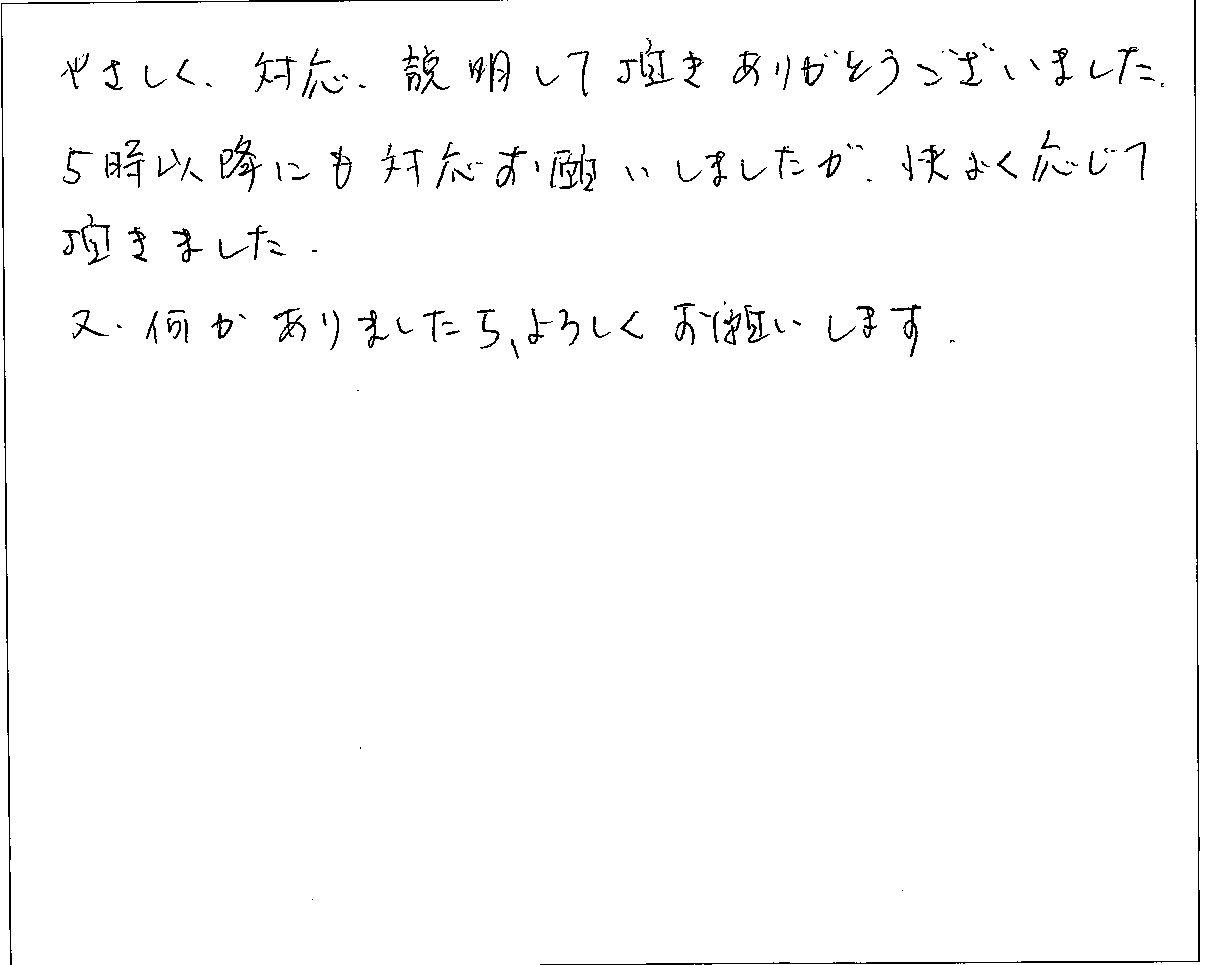 やさしく、対応、説明して頂きありがとうございました。
5時以降にも対応お願いしましたが、快よく応じて
頂きました。
又、何かありましたら、よろしくお願いします。